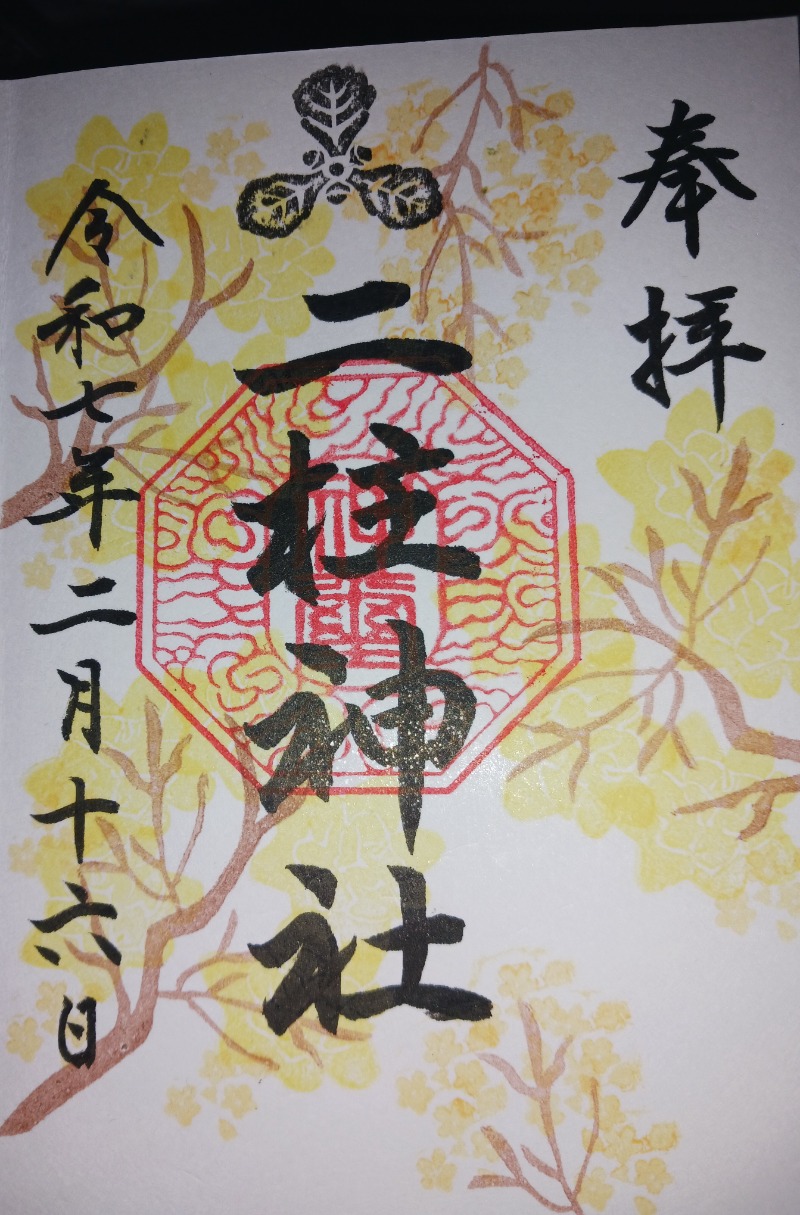 奉拝
二柱神社
令和七年二月十六日